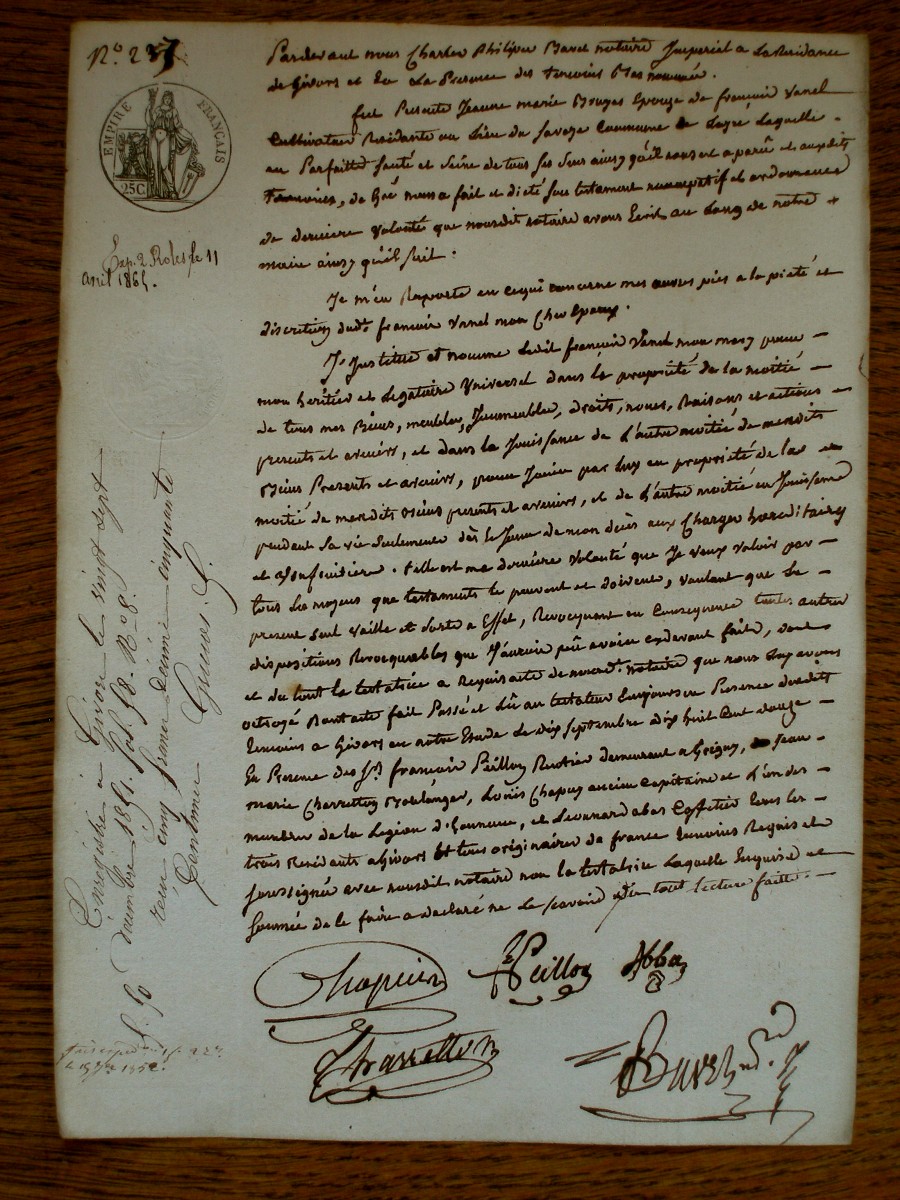 N.o 237
EMPIRE FRANÇAIS
25C.
Exp. 2 Roles le 11
avril 1865.
Pardevant nous Charles Philipe Bavet notaire Imperial a La Residance
de Givors et En La Presence des temoins Bas nommés.
fut Presente Jeanne marie Bruyas Epouze de françois Vanel
Cultivateur Residante au Lieu du favoze Commune de Layé Laquelle
au Parfaitte Santé et Seine de tous Ses Sens ainsy qu'il nous est a parû et auxdits
Temoins, de Gré nous a fait et dicté Son testament nuncupatif et ordonnances
de derniere Volonté que nousdit notaire avons Ecrit au Long de notre
main ainsy qu'il Suit.
Je m'en Raporte en cequi concerne mes œuvres pies a la pieté et
discretion dudt françois Vanel mon Cher Epoux.
J'Institue et nomme Ledit françois Vanel mon mary pour
mon heritier et Legataire Universel dans la propriété de la moitié
de tous mes Biens, meubles, Immeubles, droits, noms, Raisons et actions
presents et avenirs, et dans la Jouissance de L'autre moitié de mesdits
Biens Presents et avenirs, pour Jouir par Luy en propriété de la
moitié de mesdits Biens presents et avenirs, et de L'autre moitié en Jouissance
pendant Sa vie Seulement dès le Jour de mon décès aux Charges hereditaires
et Usufruidière. telle est ma derniere Volonté que Je veux valoir par
tous Les moyens que testaments le peuvent et doivent, voulant que Le
present Seul vaille et Sorte a Effet, Revocquant en Consequence toutes autres
dispositions Revocquables que J'aurois pû avoir cydevant faite, dont
et du tout la testatrice a Requis acte de nousdt. notaire que nous Luy avons
octroyé dont acte fait Passé et Lû au testateur toujours en Presence desdits
temoins a Givors en notre Etude Le dix Septembre dix huit Cent douze
En Presence des Srs françois Peillon Rentier demeurant a Grigny, Jean
marie Charretton Boulanger, Loüis Chapuy ancien Capitaine et L'un des
membres de la Legion d'honneur, et Leonard abas Caffetier tous les
trois Residants a Givors Et tous originaires de france temoins Requis et
Soussignée avec nousdit notaire non la testatrice Laquelle Enquise et
Sommée de le faire a declaré ne Le Scavoir d'en tout lecture faitte.
Chapuis
Peillon
Abba
Charretton
Bavet
Enregistré à Givors le vingt sept
décembre 1851. fol. 58. R.o 8.
reçu cinq francs décime cinquante
centimes
1852.